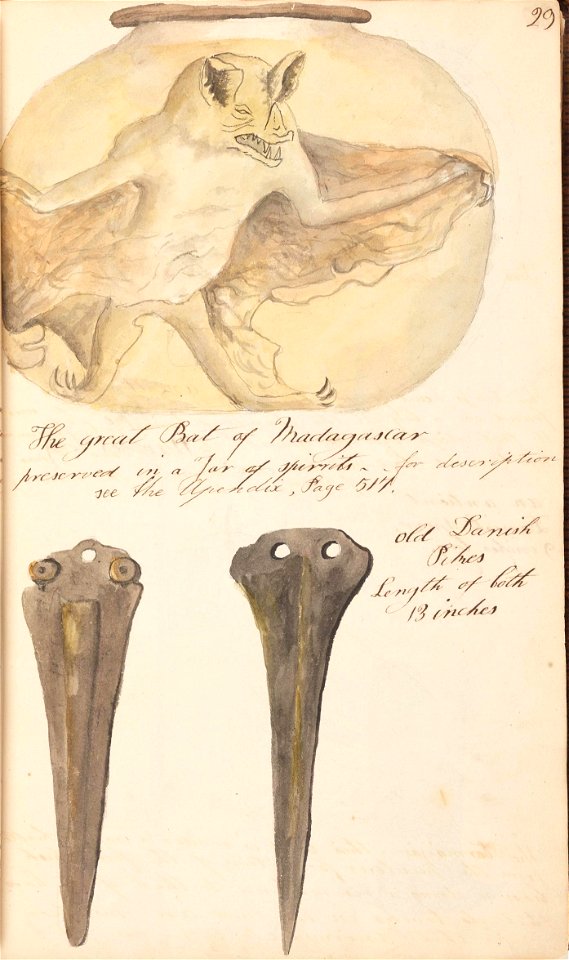 29
The great Bat of Madagascar
preserved in a Jar of spirrits - for description
see the Apendix, Page 511.
old Danish
Pikes
Length of both
13 inches